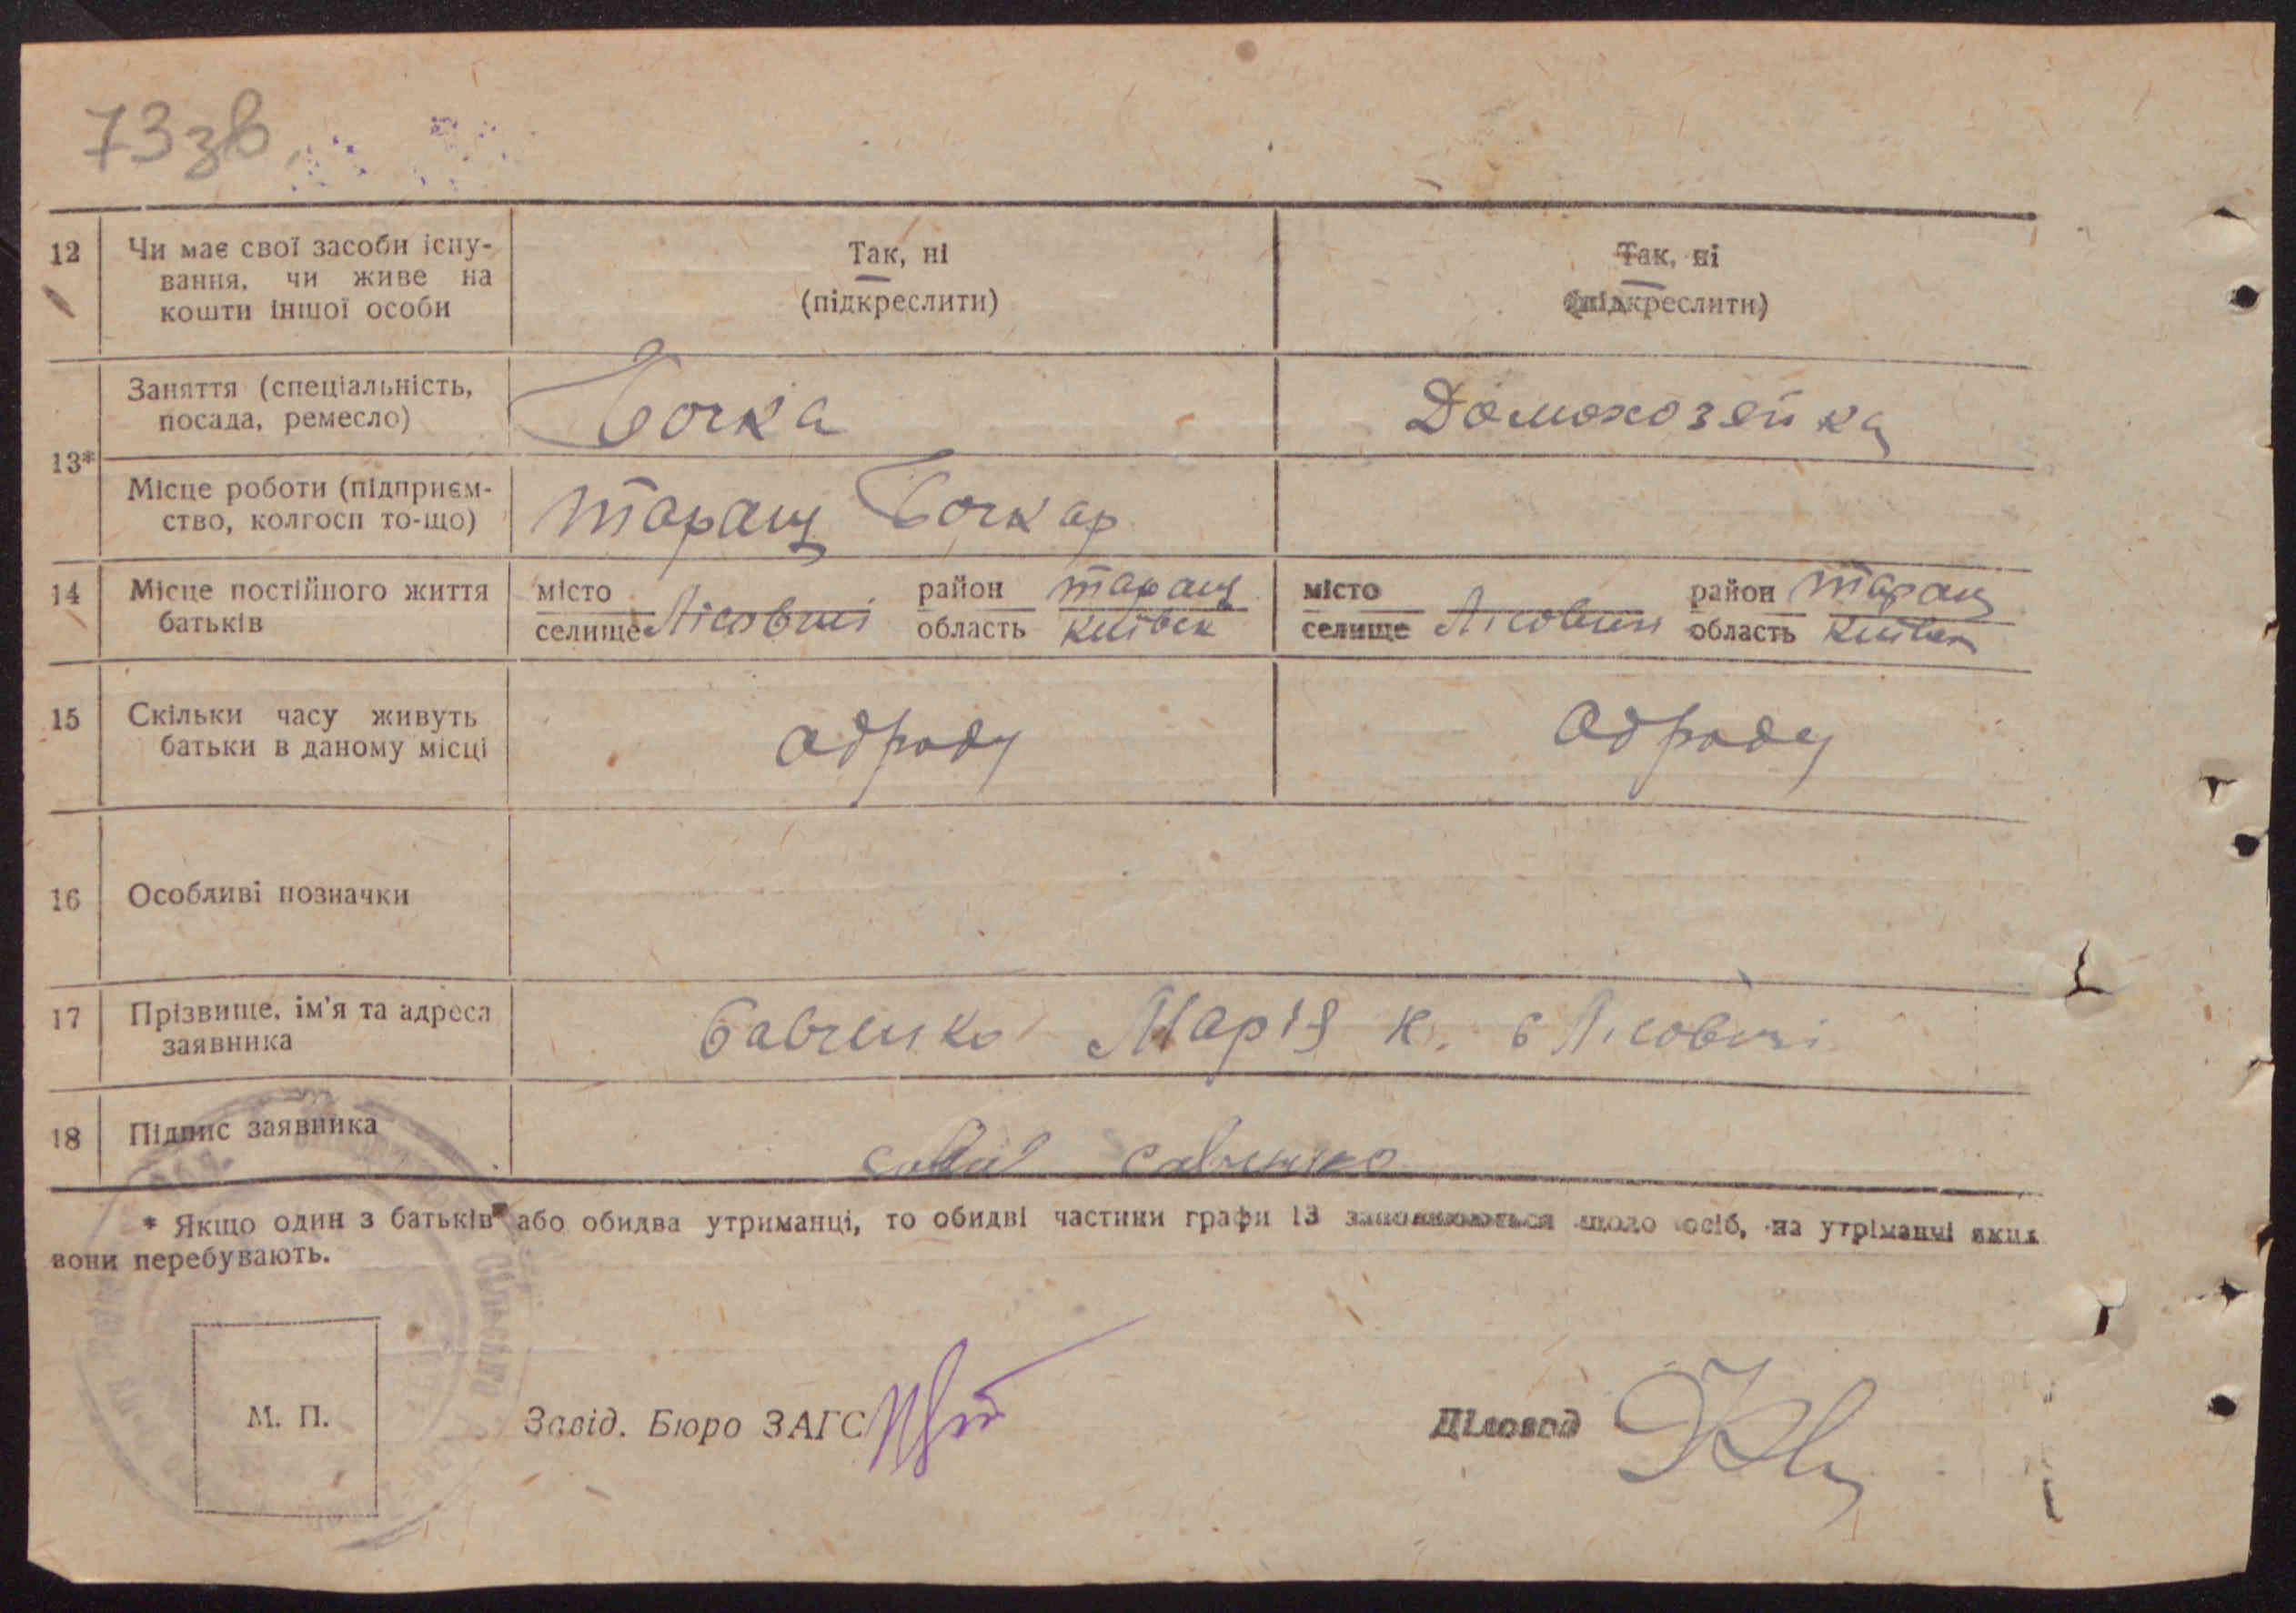 73зв
12 Чи має свої засоби існу- Так, ні Так, ні
вання, чи живе на (підкреслити) (підкреслити)
кошти іншої особи
13* Заняття (спеціальність, Бочка Домохозяйка
посада, ремесло)
Місце роботи (підприєм- Таращ Бочкар
ство, колгосп то-що)
14 Місце постійного життя місто район Таращ місто район Таращ
батьків селище Лісовичі область Київск селище Лісовичі область Київск
15 Скільки часу живуть одроду одроду
батьки в даному місці
16 Особливі позначки
17 Прізвище, ім'я та адреса Савченко Марія К. с Лісовичі
заявника
18 Підпис заявника савченко
* Якщо один з батьків або обидва утриманці, то обидві частини графи 13 заповнюються щодо осіб, на утріманні яких
вони перебувають.
М. П. Завід. Бюро ЗАГС Діловод